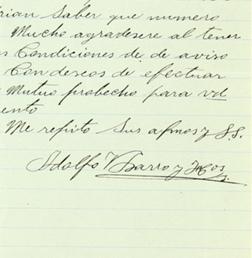 rian Saber que numero
Mucho agradesere al tener
s Condiciones de de aviso
Con deseos de efectuar
Mutuo probecho para vd
ento
Me repito Sus afmos y S.S.
Adolfo Ybarro y Hijos